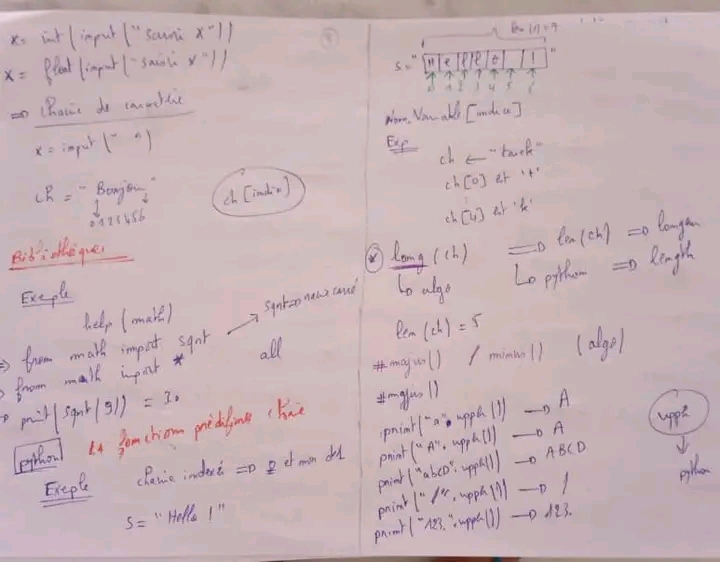 x = int(input("saisir x"))
x = float(input("saisir x"))
=> Chaine de caractère
x = input(" ")
ch = "Bonjour"
0123456
ch[indice]
Bibliothèque
Exemple
help(math)
=> from math import sqrt
sqrt => racine carré
=> from math import *
all
print(sqrt(9)) = 3.
python
fonctions prédéfinies chaine
Exemple
chaine indexé => 0 et non del
s = "Hello !"
len(s) = 7
s = " H e l l o ! "
0 1 2 3 4 5 6
Nom_Variable[indice]
Exp
ch ← "
ch[0] est 't'
ch[4] est 'k'
* long(ch) => len(ch) => longueur
↳ algo
↳ python => length
len(ch) = 5
#majus() / minus() (algo)
#majus()
print("a".upph()) → A
print("A".upph()) → A
print("abcD".upph()) → ABCD
print("/".upph()) → /
print("123.".upph()) → 123.
upph
↓
python